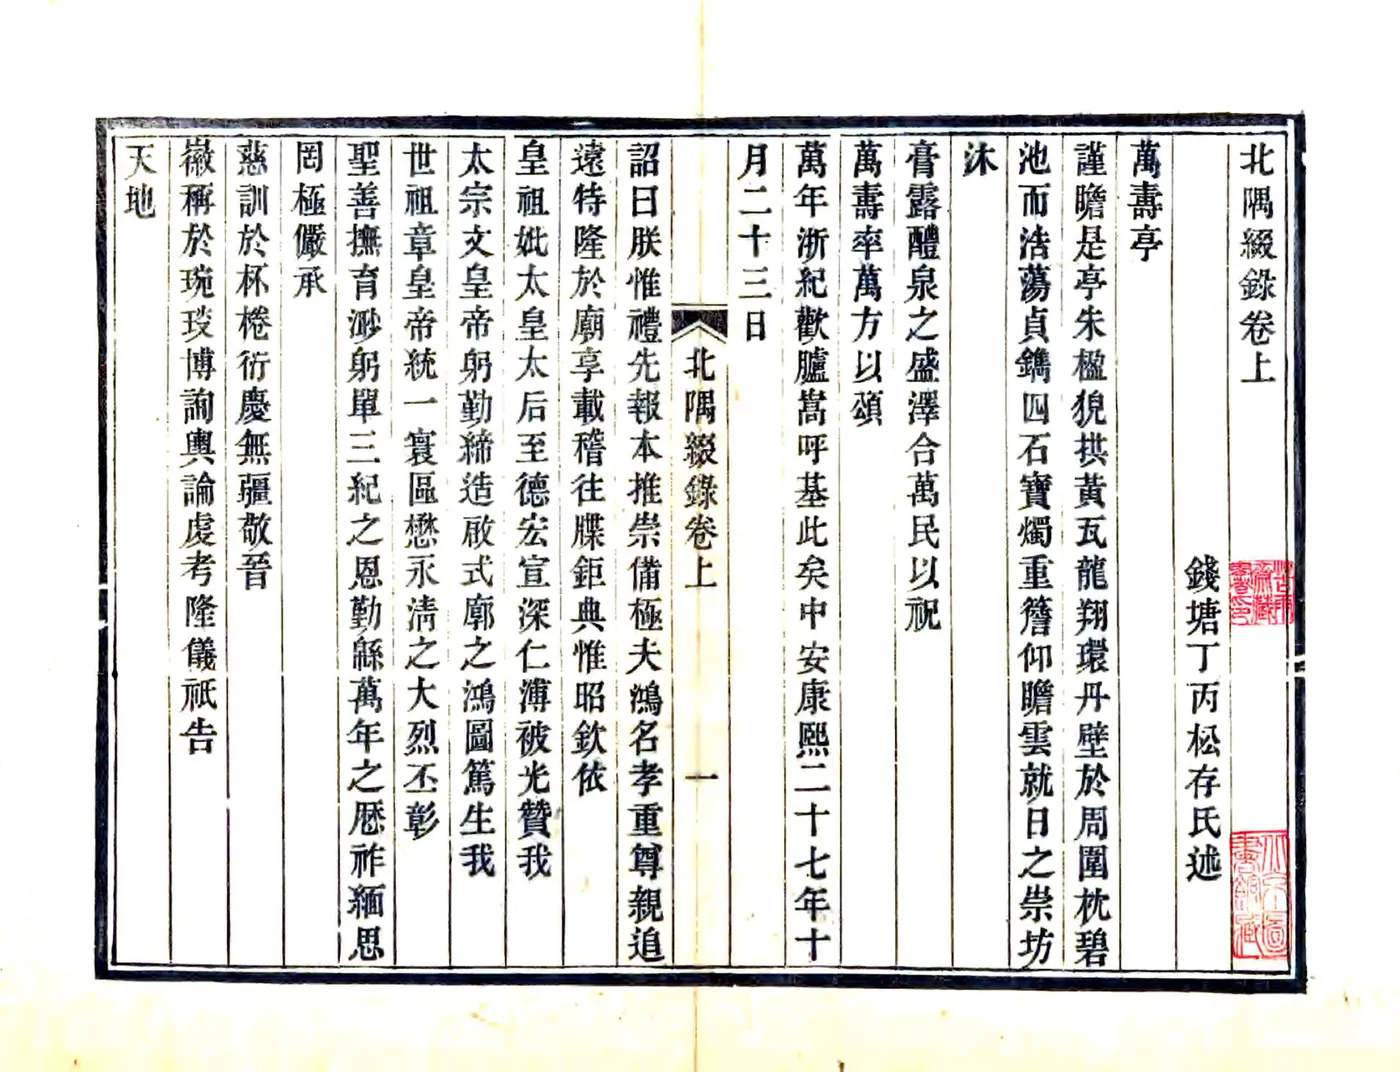 北隅綴錄卷上
錢塘丁丙松存氏述
萬壽亭
謹瞻是亭朱楹猊拱黃瓦龍翔環丹壁於周圍枕碧
池而浩蕩貞鐫四石寶燭重簷仰瞻雲就日之崇坊
沐
膏露醴泉之盛澤合萬民以祝
萬壽率萬方以頌
萬年浙紀歡臚嵩呼基此矣中安康熙二十七年十
月二十三日
北隅綴錄卷上
一
詔曰朕惟禮先報本推崇備極夫鴻名孝重尊親追
遠特隆於廟享載稽往牒鉅典惟昭欽依
皇祖妣太皇太后至德宏宣深仁溥被光贊我
太宗文皇帝躬勤締造啟式廓之鴻圖篤生我
世祖章皇帝統一寰區懋永淸之大烈丕彰
聖善撫育渺躬單三紀之恩勤緜萬年之厯祚緬思
罔極儼承
慈訓於杯棬衍慶無疆敬晉
徽稱於琬琰博詢輿論虔考隆儀祇告
天地